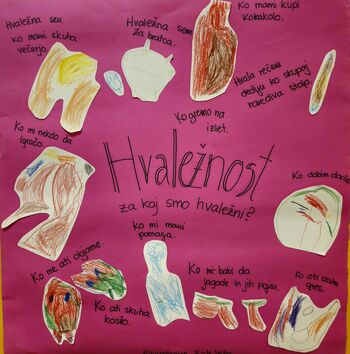 Hvaležna sem
ko mami skuha
večerjo.
Hvaležna sem
za bratca.
Ko mami kupi
kokakolo.
Hvala rečem
dediju ko skupaj
Ko gremo na
izlet.
Ko mi nekdo da
igračo.
Hvaležnost
za kaj smo hvaležni?
Ko dobim darilo.
Ko mi mami
pomaga.
Ko me ati objame.
Ko mi babi da
jagode in jih pojem.
Ko ati skuha
Ko ati skuha
kosilo.